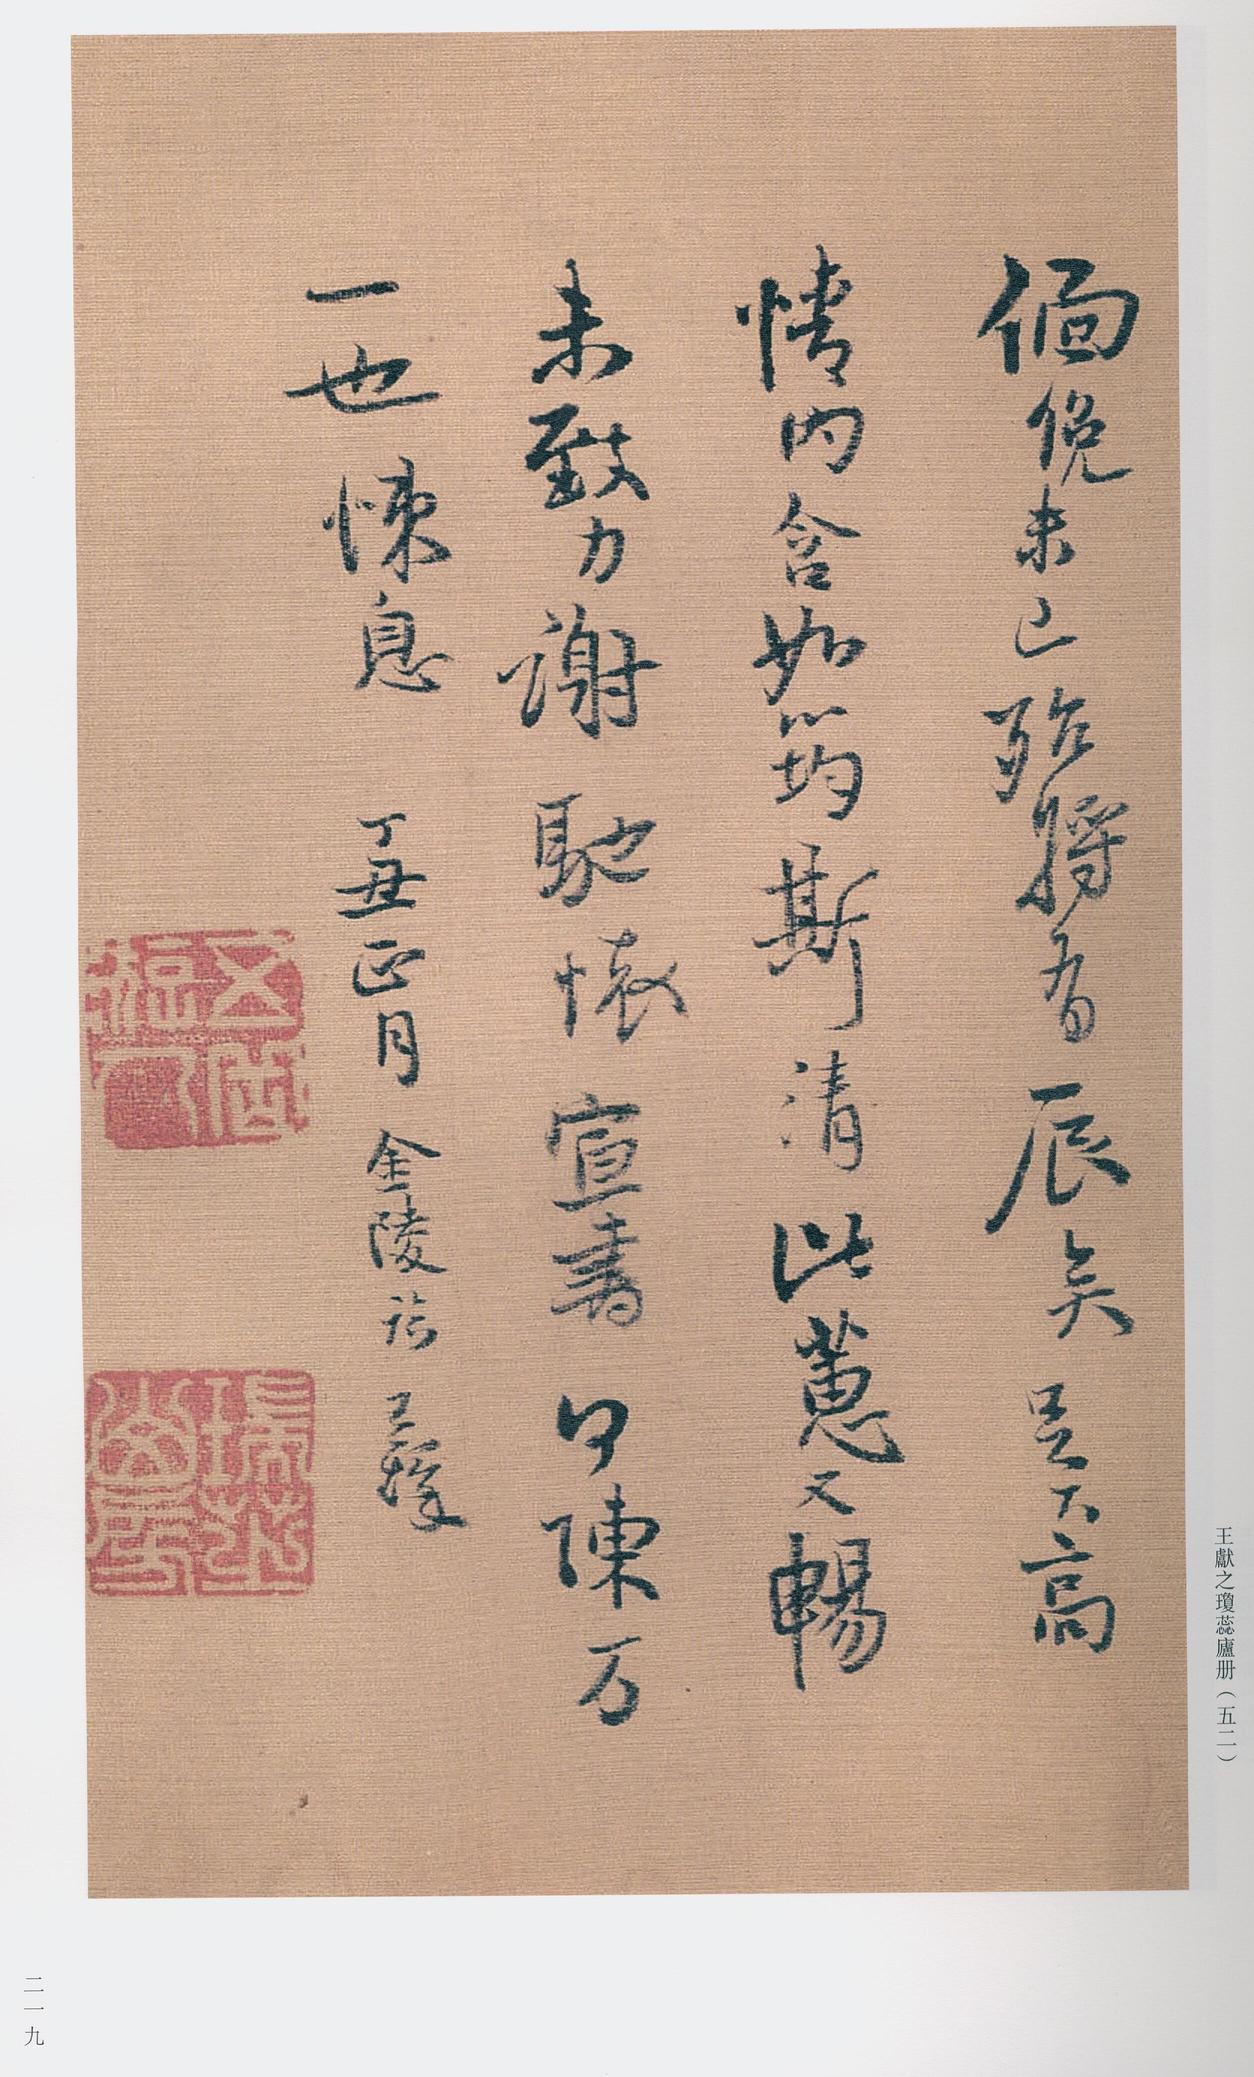 偭俛未已殆將有辰矣足下高
情內含如筠斯清比蕙又暢
未致力謝馳懷宣書陳万
一也悚息 丁丑正月金陵 王鐸
王獻之瓊蕊廬册（五二）
二一九